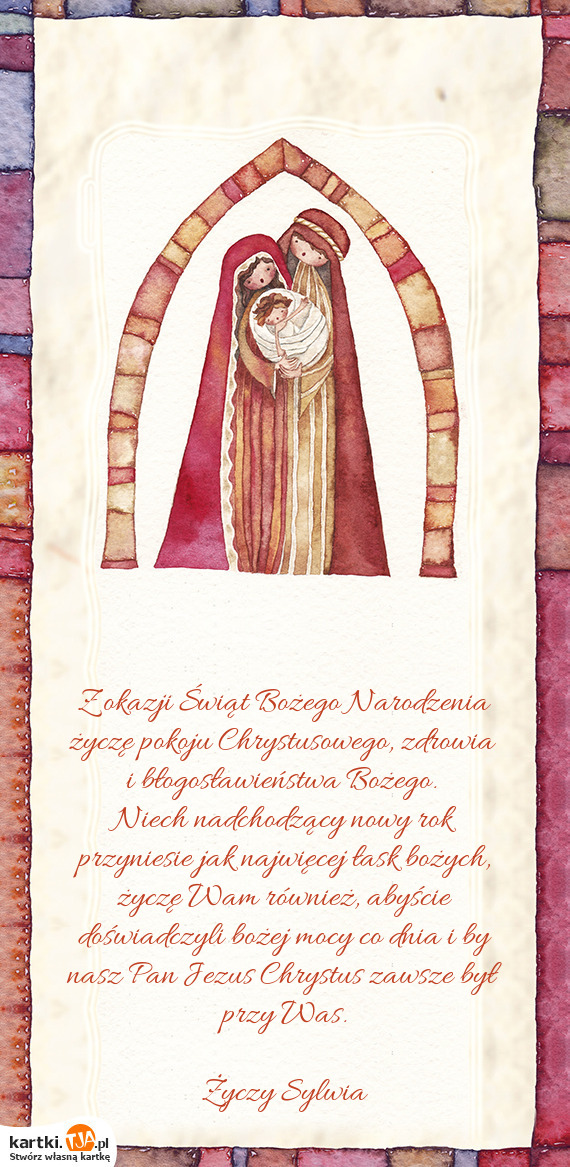 Z okazji Świąt Bożego Narodzenia
życzę pokoju Chrystusowego, zdrowia
i błogosławieństwa Bożego.
Niech nadchodzący nowy rok
przyniesie jak najwięcej łask bożych,
życzę Wam również, abyście
doświadczyli bożej mocy co dnia i by
nasz Pan Jezus Chrystus zawsze był
przy Was.
Życzy Sylwia
kartki.TJA.pl
Stwórz własną kartkę